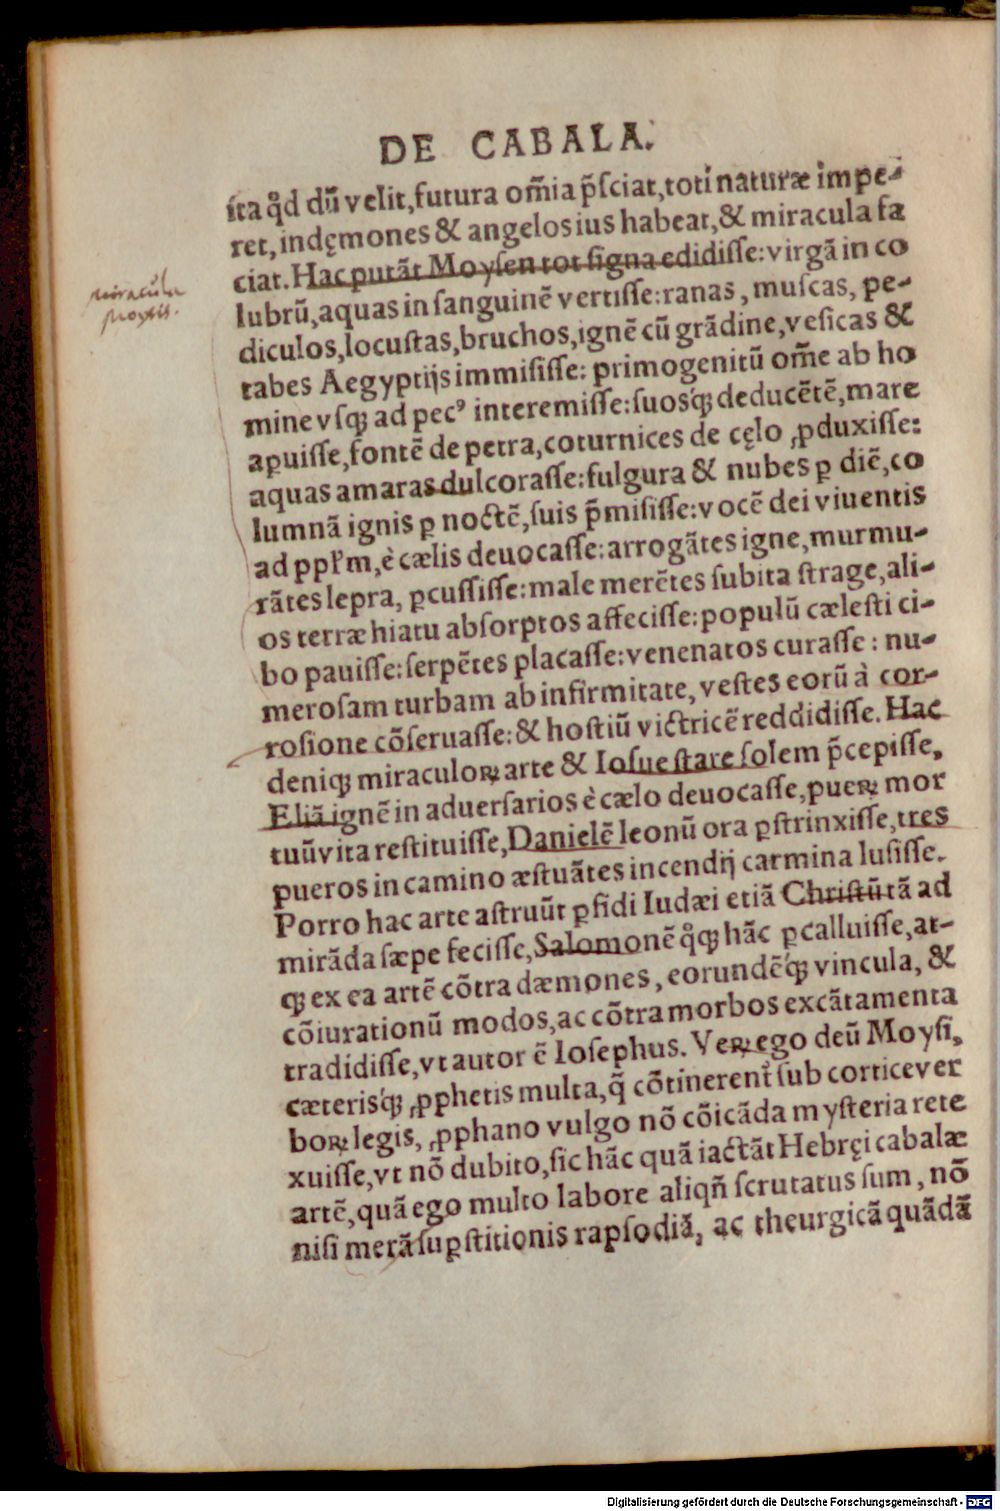 DE CABALA.
ita qđ dũ velit, futura om̃ia p̃sciat, toti naturæ impe-
ret, in dęmones & angelos ius habeat, & miracula fa
ciat. Hac putãt Moysen tot signa edidisse: virgã in co
lubrũ, aquas in sanguinẽ vertisse: ranas, muscas, pe-
diculos, locustas, bruchos, ignẽ cũ grãdine, vesicas &
tabes Aegyptijs immisisse: primogenitũ om̃e ab ho
mine vsq; ad pecꝰ interemisse: suosq́; deducẽtẽ, mare
apuisse, fontẽ de petra, coturnices de cęlo ꝓduxisse:
aquas amaras dulcorasse: fulgura & nubes ꝑ diẽ, co
lumnã ignis ꝑ noctẽ, suis p̃misisse: vocẽ dei viuentis
ad ppl'm, è cælis deuocasse: arrogãtes igne, murmu-
rãtes lepra, ꝑcussisse: male merẽtes subita strage, ali-
os terræ hiatu absorptos affecisse: populũ cælesti ci-
bo pauisse: serpẽtes placasse: venenatos curasse: nu-
merosam turbam ab infirmitate, vestes eorũ à cor-
rosione cõseruasse: & hostiũ victricẽ reddidisse. Hac
deniq; miraculoꝝ arte & Iosue stare solem p̃cepisse,
Eliã ignẽ in aduersarios è cælo deuocasse, pueꝝ mor
tuũ vita restituisse, Danielẽ leonũ ora ꝑstrinxisse, tres
pueros in camino æstuãtes incendij carmina lusisse.
Porro hac arte astruũt ꝑfidi Iudæi etiã Christũ tã ad
mirãda sæpe fecisse, Salomonẽ q̊q; hãc ꝑcalluisse, at-
q; ex ea artẽ cõtra dæmones, eorundẽq́; vincula, &
cõiurationũ modos, ac cõtra morbos excãtamenta
tradidisse, vt autor ẽ Iosephus. Veꝝ ego deũ Moysi,
cæterisq́; ꝓphetis multa, q̃ cõtinerent̃ sub cortice ver
boꝝ legis, ꝓphano vulgo nõ cõicãda mysteria rete
xuisse, vt nõ dubito, sic hãc quã iactãt Hebręi cabalæ
artẽ, quã ego multo labore aliqñ scrutatus sum, nõ
nisi merã suꝑstitionis rapsodiã, ac theurgicã quãdã
miracula
Moysis.
Digitalisierung gefördert durch die Deutsche Forschungsgemeinschaft - DFG